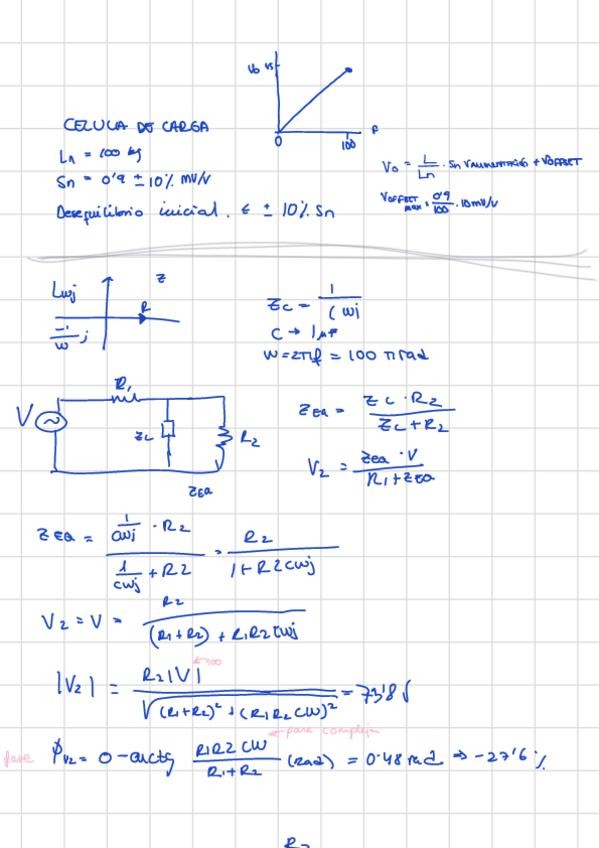 Vo vs
0 100 P
CELULA DE CARGA
Ln = 100 kg
Sn = 0'9 ± 10% mV/V
Desequilibrio inicial. € ± 10% Sn
Vo = L/Ln · Sn VALIMENTACIÓN + VOFFSET
VOFFSET MAX = 0'9/100 · 10 mV/V
Lwj Z
R
-1/w j
Zc = 1/(Cwj
C → 1 µF
W = 2πf = 100 π rad
R1
V ZC R2
ZEQ
ZEQ = ZC · R2 / ZC + R2
V2 = ZEQ · V / R1 + ZEQ
ZEQ = 1/CWj · R2 / 1/CWj + R2 = R2 / 1 + R2CWj
V2 = V = R2 / (R1 + R2) + R1R2CWj
← 100
|V2| = R2|V| / √(R1+R2)² + (R1R2CW)² = 73'8 V
← parte compleja
fase φV2 = 0 - arctg R1R2CW / R1+R2 (rad) = 0'48 rad ⇒ -27'6 %
R2